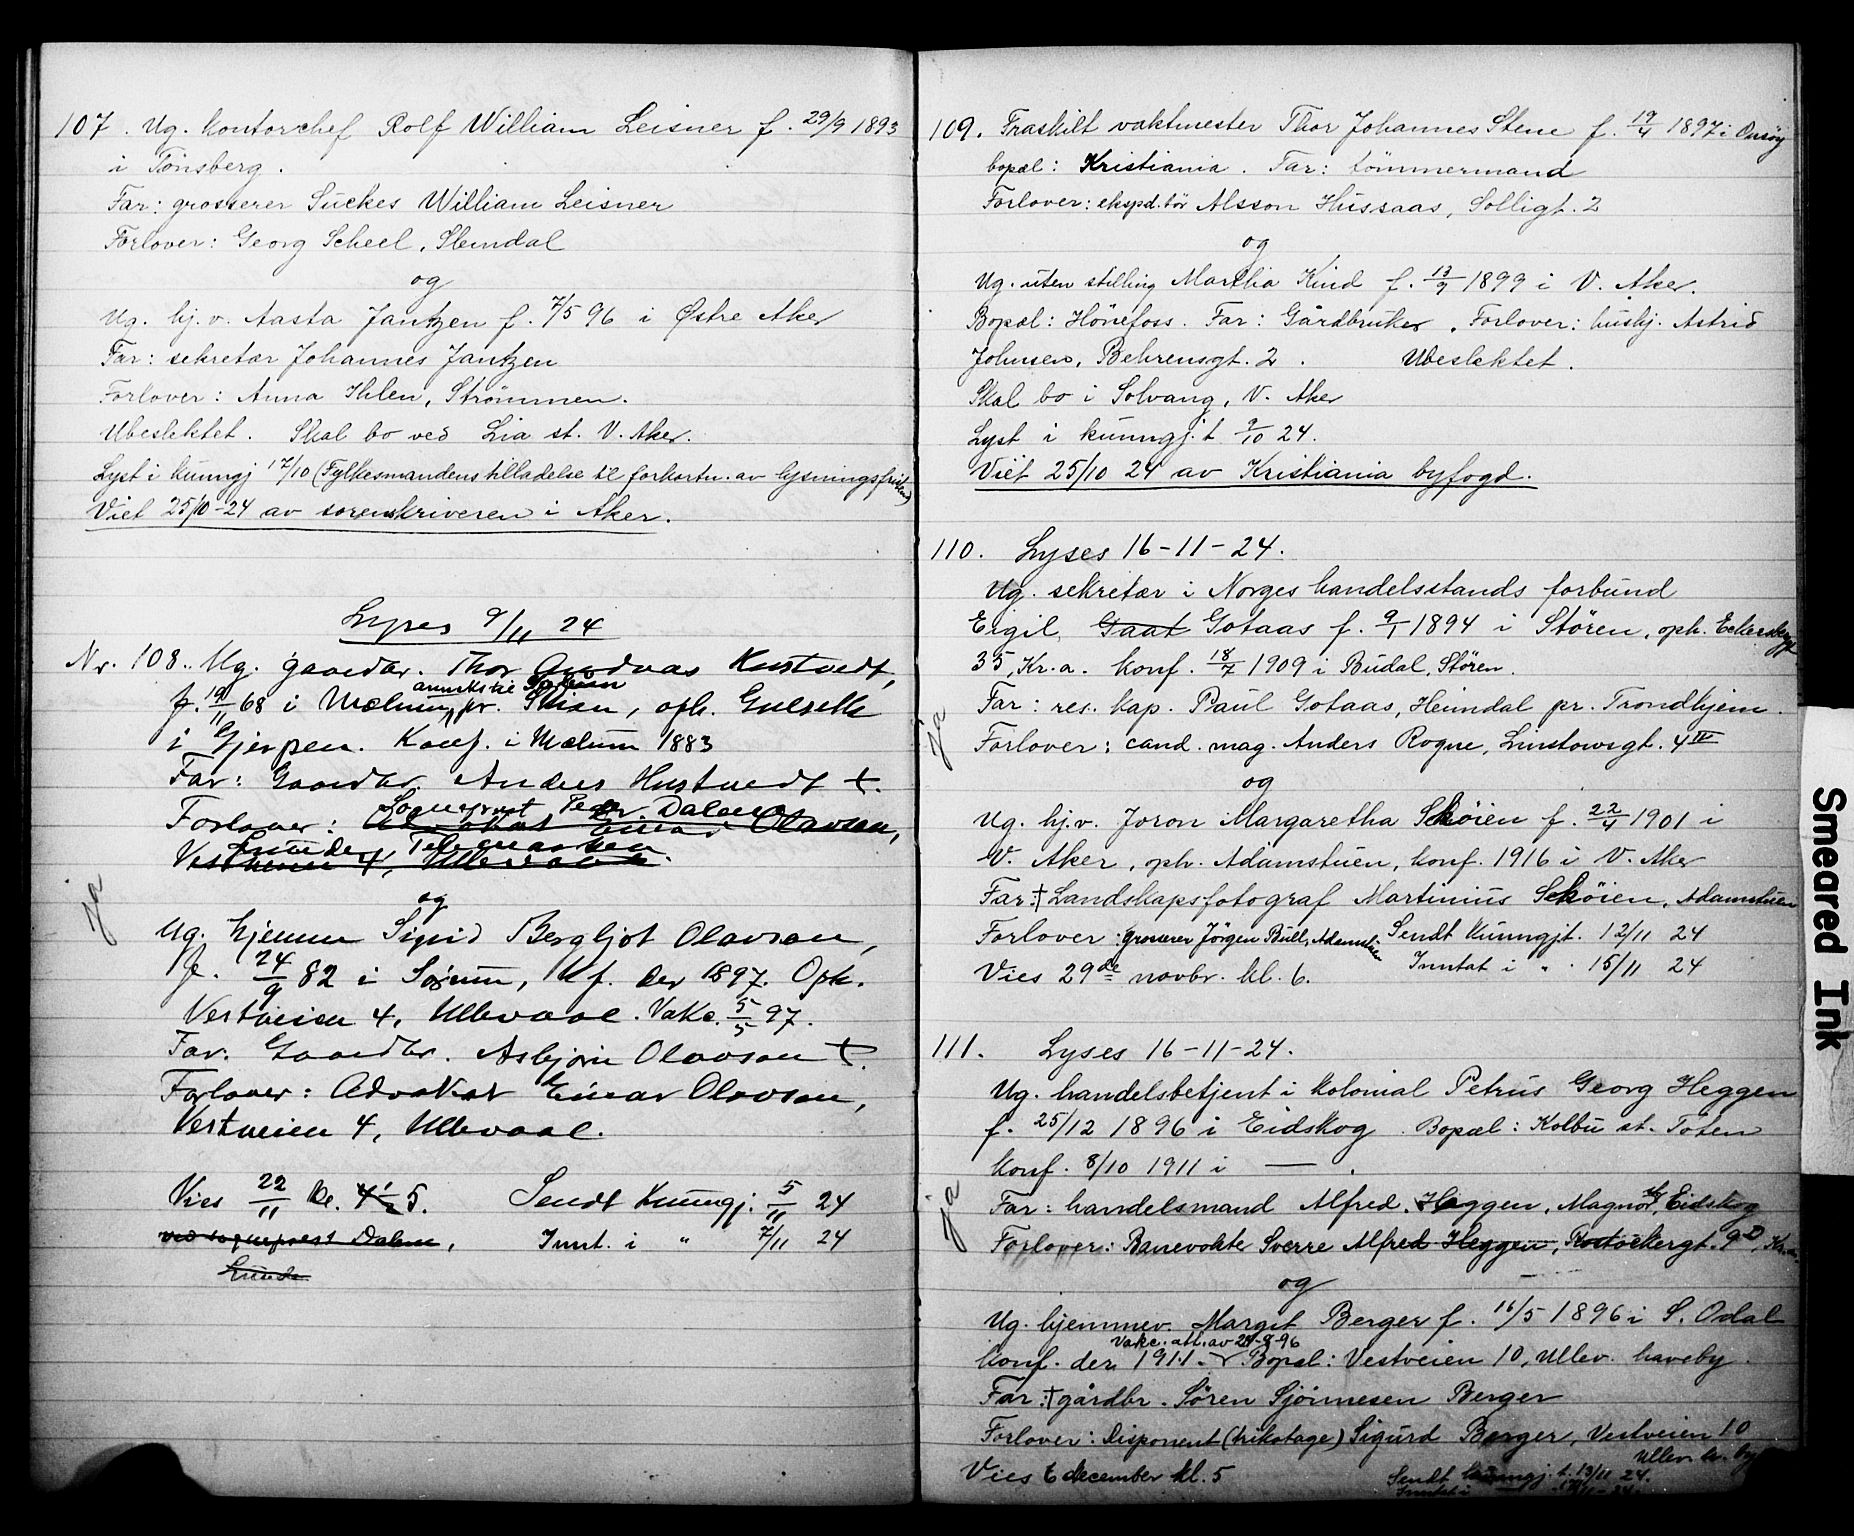 107. Ug. kontorchef Rolf William Leisner f. 29/9 1893
i Tönsberg.
Far: grosserer Suckes William Leisner
Forlover: Georg Scheel, Slemdal
og
Ug. hj.v. Aasta Jantzen f. 7/5 96 i Østre Aker
Far: sekretær Johannes Jantzen
Forlover: Anna Ihlen, Strömmen.
Ubeslektet. Skal bo ved Lia st. V. Aker.
Lyst i kunngj 17/10 (Fylkesmandens tilladelse til forkortn. av lysningsfristen)
Viet 25/10-24 av sorenskriveren i Aker.
Lyses 9/11 24
Nr. 108. Ug. gaardbr. Thor Andreas Hustvedt,
annekskie Solum
f. 19/11 68 i Mælum, pr. Skien, oph. Gulseth
i Gjerpen. Konf. i Mælum 1883
Far: Gaardbr. Anders Hustvedt +.
Sogneprest Peder Dalen
Forlover: Advokat Einar Olavson,
Lunde, Telemarken
Vestveien 4, Ullevaal.
og
Ja
Ug. hjemmev Sigrid Bergljot Olavson,
f. 24/9 82 i Sørum, Kf. der 1897. Oph.
Vestveien 4, Ullevaal. Vakc. 5/5 97.
Far. Gaardbr. Asbjørn Olavson +.
Forlover: Advokat Einar Olavson,
Vestveien 4, Ullevaal.
Vies 22/11 kl. 4½ 5. Sendt Kunngj: 5/11 24
ved sogneprest Dalen, Innt. i " 7/11 24
Lunde
109. Fraskilt vaktmester Thor Johannes Stene f. 19/4 1897 i Onsöy
bopæl: Kristiania. Far: tömmermand
Forlover: ekspd.tör Alsson Hussaas, Solligt. 2
og
Ug. uten stilling Martha Kind f. 13/9 1899 i V. Aker.
Bopæl: Hönefoss. Far: Gårdbruker. Forlover: hushj. Astrid
Johnsen, Behrensgt. 2. Ubeslektet.
Skal bo i Solvang, V. Aker
Lyst i kunngj.t 9/10 24.
Viet 25/10 24 av Kristiania byfogd.
110. Lyses 16-11-24.
Ug. sekretær i Norges handelsstands forbund
Eigil Gaat Gotaas f. 9/1 1894 i Stören, oph. Eckersbergt
35, Kr.a. konf. 18/7 1909 i Budal, Stören.
Far: res. kap. Paul Gotaas, Heimdal pr. Trondhjem.
Ja
Forlover: cand. mag. Anders Rogne, Linstowsgt. 4 IV
og
Ug. hj.v. Joron Margaretha Sköien f. 22/4 1901 i
V. Aker, oph. Adamstuen, konf. 1916 i V. Aker
Far: † Landskapsfotograf Martinius Sköien, Adamstuen
Forlover: grosserer Jörgen Bull, Adamstuen Sendt Kunngjt. 12/11 24
Vies 29de novbr. kl. 6. Inntat i " 15/11 24
111. Lyses 16-11-24.
Ug. handelsbetjent i kolonial Petrus Georg Heggen
f. 25/12 1896 i Eidskog. Bopæl: Kolbu st. Toten
konf. 8/10 1911 i — .
Ja
Far: handelsmand Alfred Heggen, Magnor, Eidskog
Forlover: Banevokte Sverre Alfred Heggen, Rostockergt. 9
og
Ug. hjemmev. Margit Berger f. 16/5 1896 i S. Odal
Vakc. att. av 29-9-96
konf. der 1911. Bopæl: Vestveien 10, Ullev. haveby.
Far: † gårdbr. Sören Sjönnesen Berger
Forlover: Disponent (trikotage) Sigurd Berger, Vestveien 10
Ullev. h. by
Vies 6 december kl. 5 Sendt kunngj. t. 13/11 24.
Inntat i
Smeared Ink